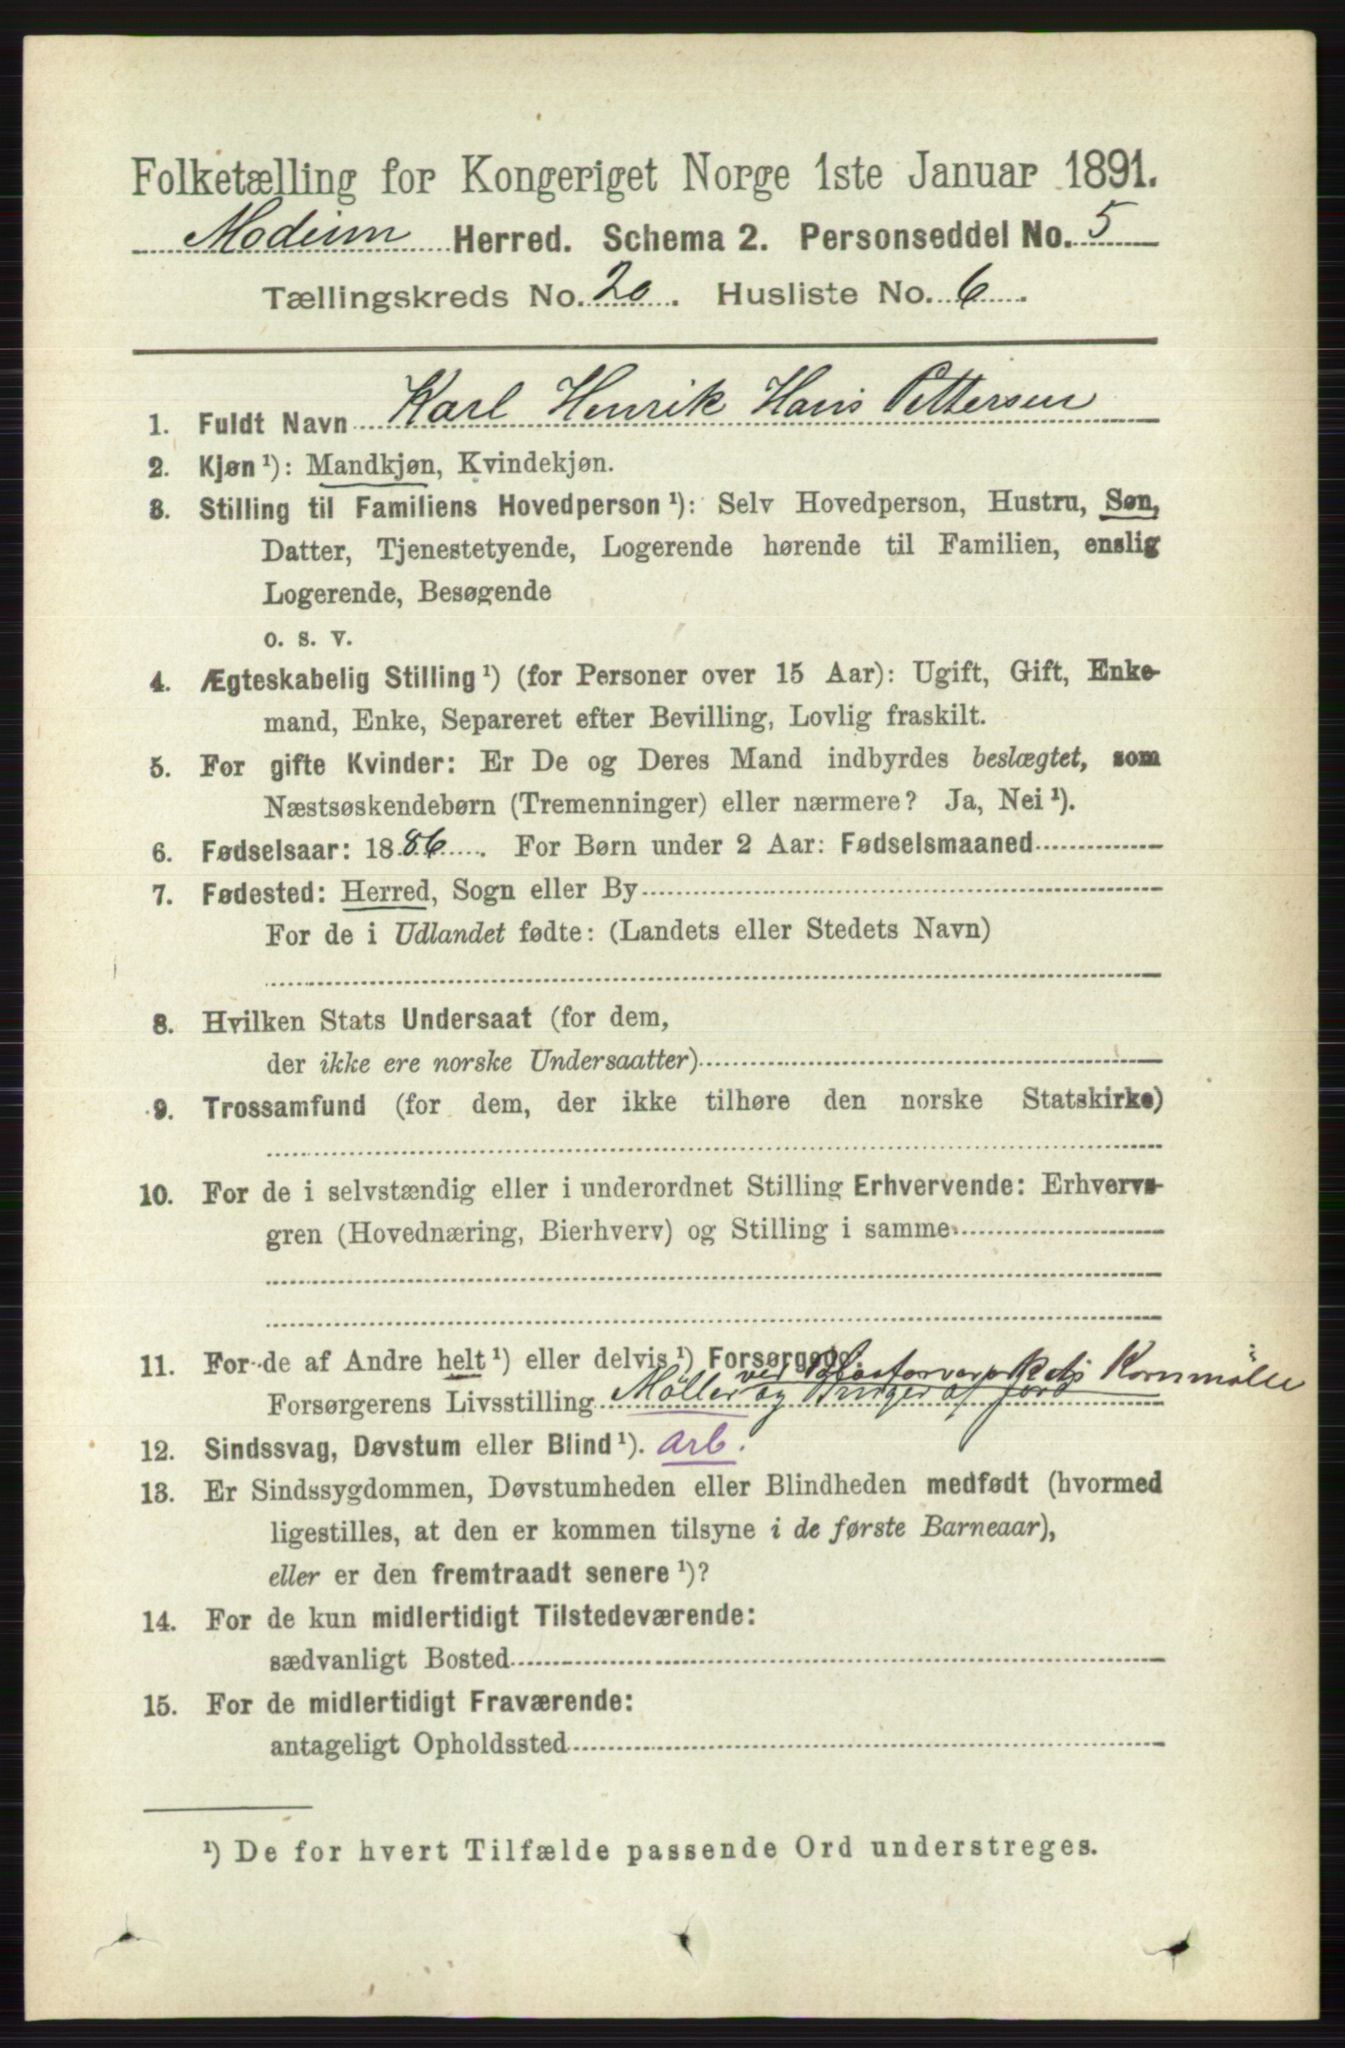 Folketælling for Kongeriget Norge 1ste Januar 1891.
Modum Herred. Schema 2. Personseddel No. 5
Tællingskreds No. 20. Husliste No. 6.
1. Fuldt Navn Karl Henrik Hans Pettersen
2. Kjøn¹): Mandkjøn, Kvindekjøn.
3. Stilling til Familiens Hovedperson¹): Selv Hovedperson, Hustru, Søn,
Datter, Tjenestetyende, Logerende hørende til Familien, enslig
Logerende, Besøgende
o. s. v.
4. Ægteskabelig Stilling¹) (for Personer over 15 Aar): Ugift, Gift, Enke-
mand, Enke, Separeret efter Bevilling, Lovlig fraskilt.
5. For gifte Kvinder: Er De og Deres Mand indbyrdes beslægtet, som
Næstsøskendebørn (Tremenninger) eller nærmere? Ja, Nei¹).
6. Fødselsaar: 1886. For Børn under 2 Aar: Fødselsmaaned
7. Fødested: Herred, Sogn eller By
For de i Udlandet fødte: (Landets eller Stedets Navn)
8. Hvilken Stats Undersaat (for dem,
der ikke ere norske Undersaatter)
9. Trossamfund (for dem, der ikke tilhøre den norske Statskirke)
10. For de i selvstændig eller i underordnet Stilling Erhvervende: Erhvervs-
gren (Hovednæring, Bierhverv) og Stilling i samme
11. For de af Andre helt¹) eller delvis¹) Forsørgede:
ved Blaafarveværkets Kornmølle
Forsørgerens Livsstilling Møller og Bruger af jord
12. Sindssvag, Døvstum eller Blind¹). Arb.
13. Er Sindssygdommen, Døvstumheden eller Blindheden medfødt (hvormed
ligestilles, at den er kommen tilsyne i de første Barneaar),
eller er den fremtraadt senere¹)?
14. For de kun midlertidigt Tilstedeværende:
sædvanligt Bosted
15. For de midlertidigt Fraværende:
antageligt Opholdssted
¹) De for hvert Tilfælde passende Ord understreges.